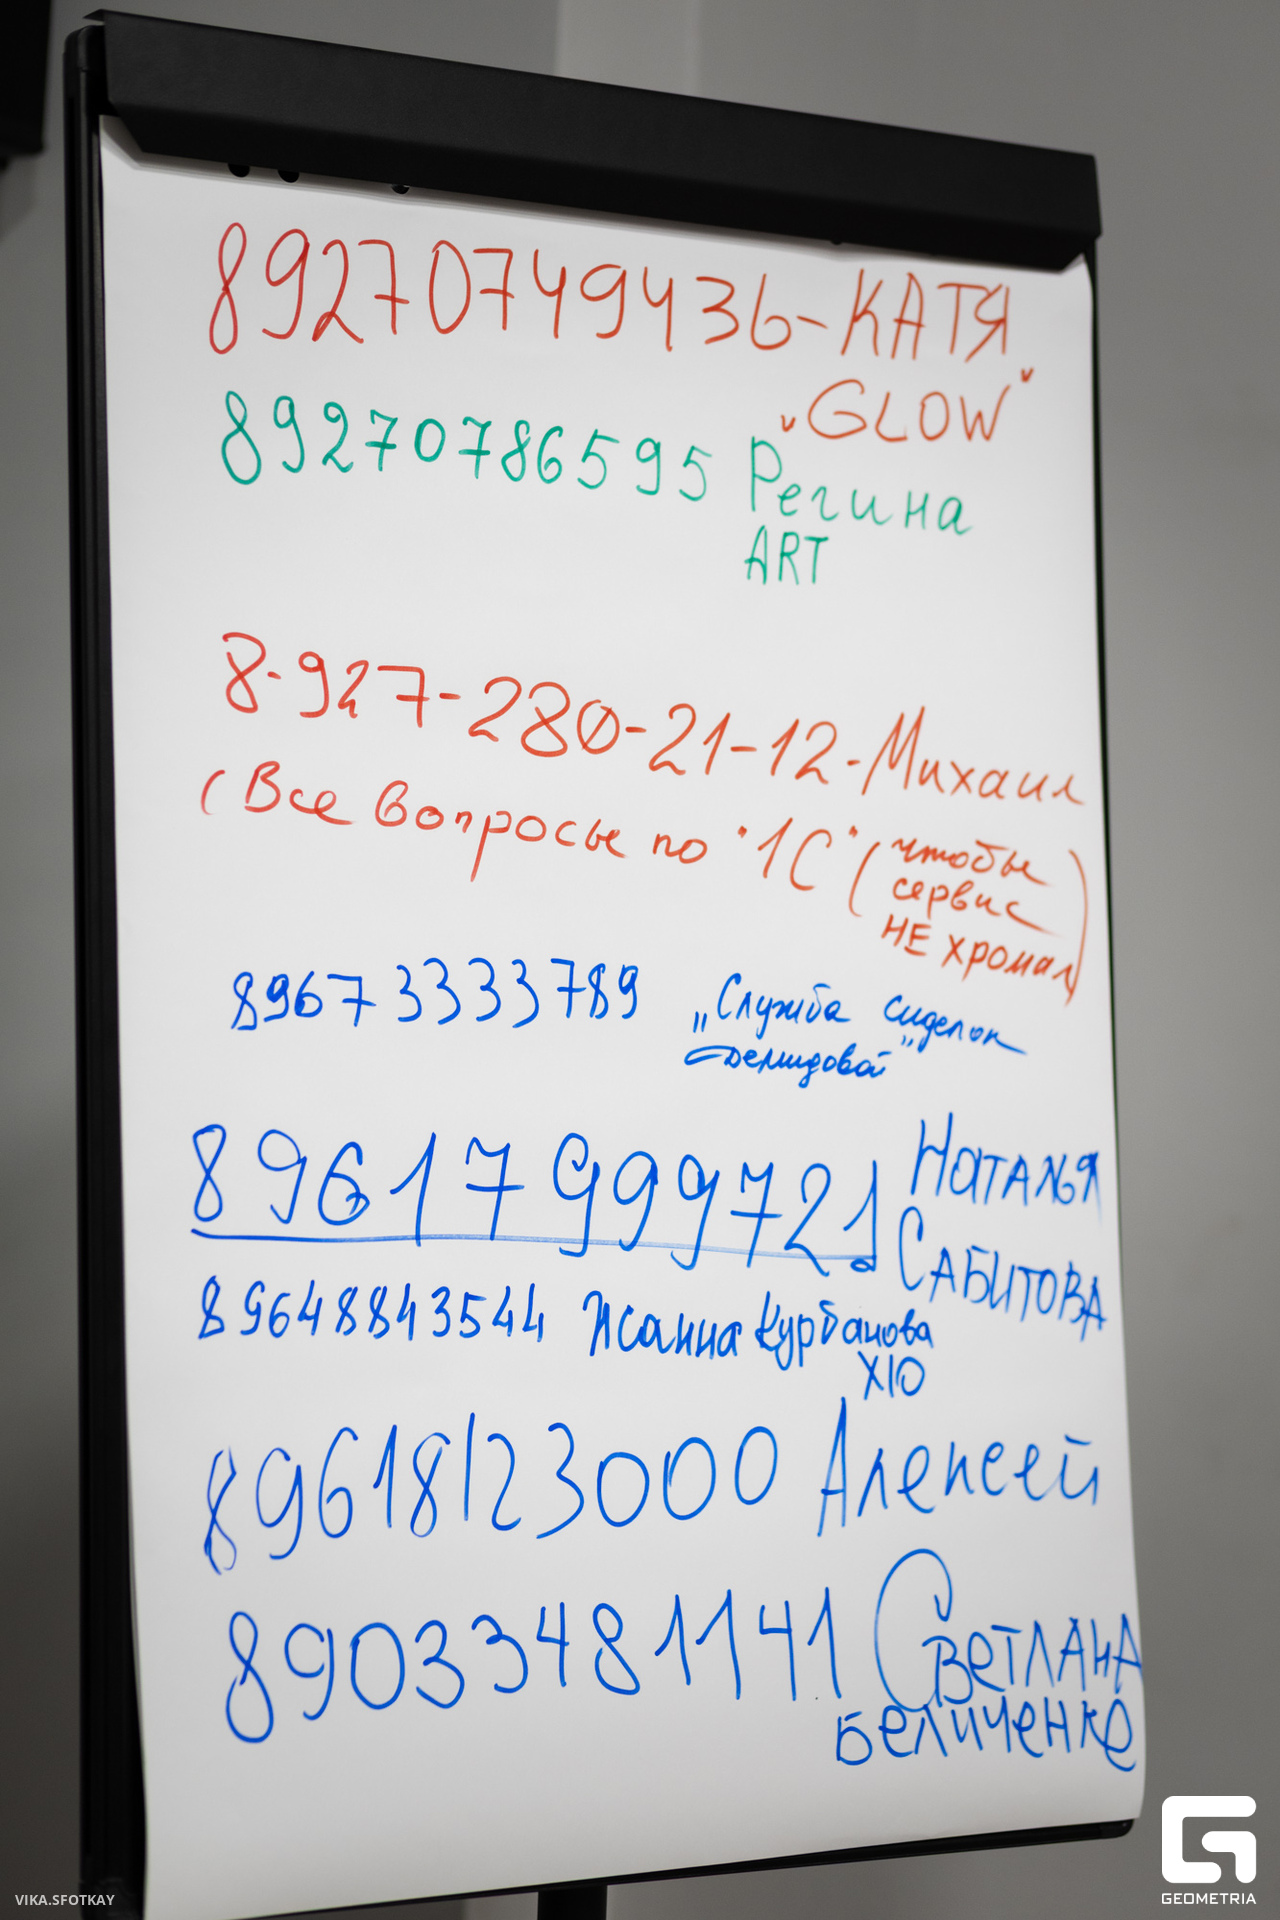 89270749436-КАТЯ
"GLOW"
89270786595 Регина
ART
8-927-280-21-12-Михаил
(Все вопросы по "1С" (чтобы
сервис
НЕ хромал)
89673333789 „Служба сиделок
Демидовой"
89617999721 Наталья
Сабитова
89648843544 Жанна Курбанова
ХЮ
89618123000 Алексей
89033481141 Светлана
Беличенко
VIKA.SFOTKAY
GEOMETRIA